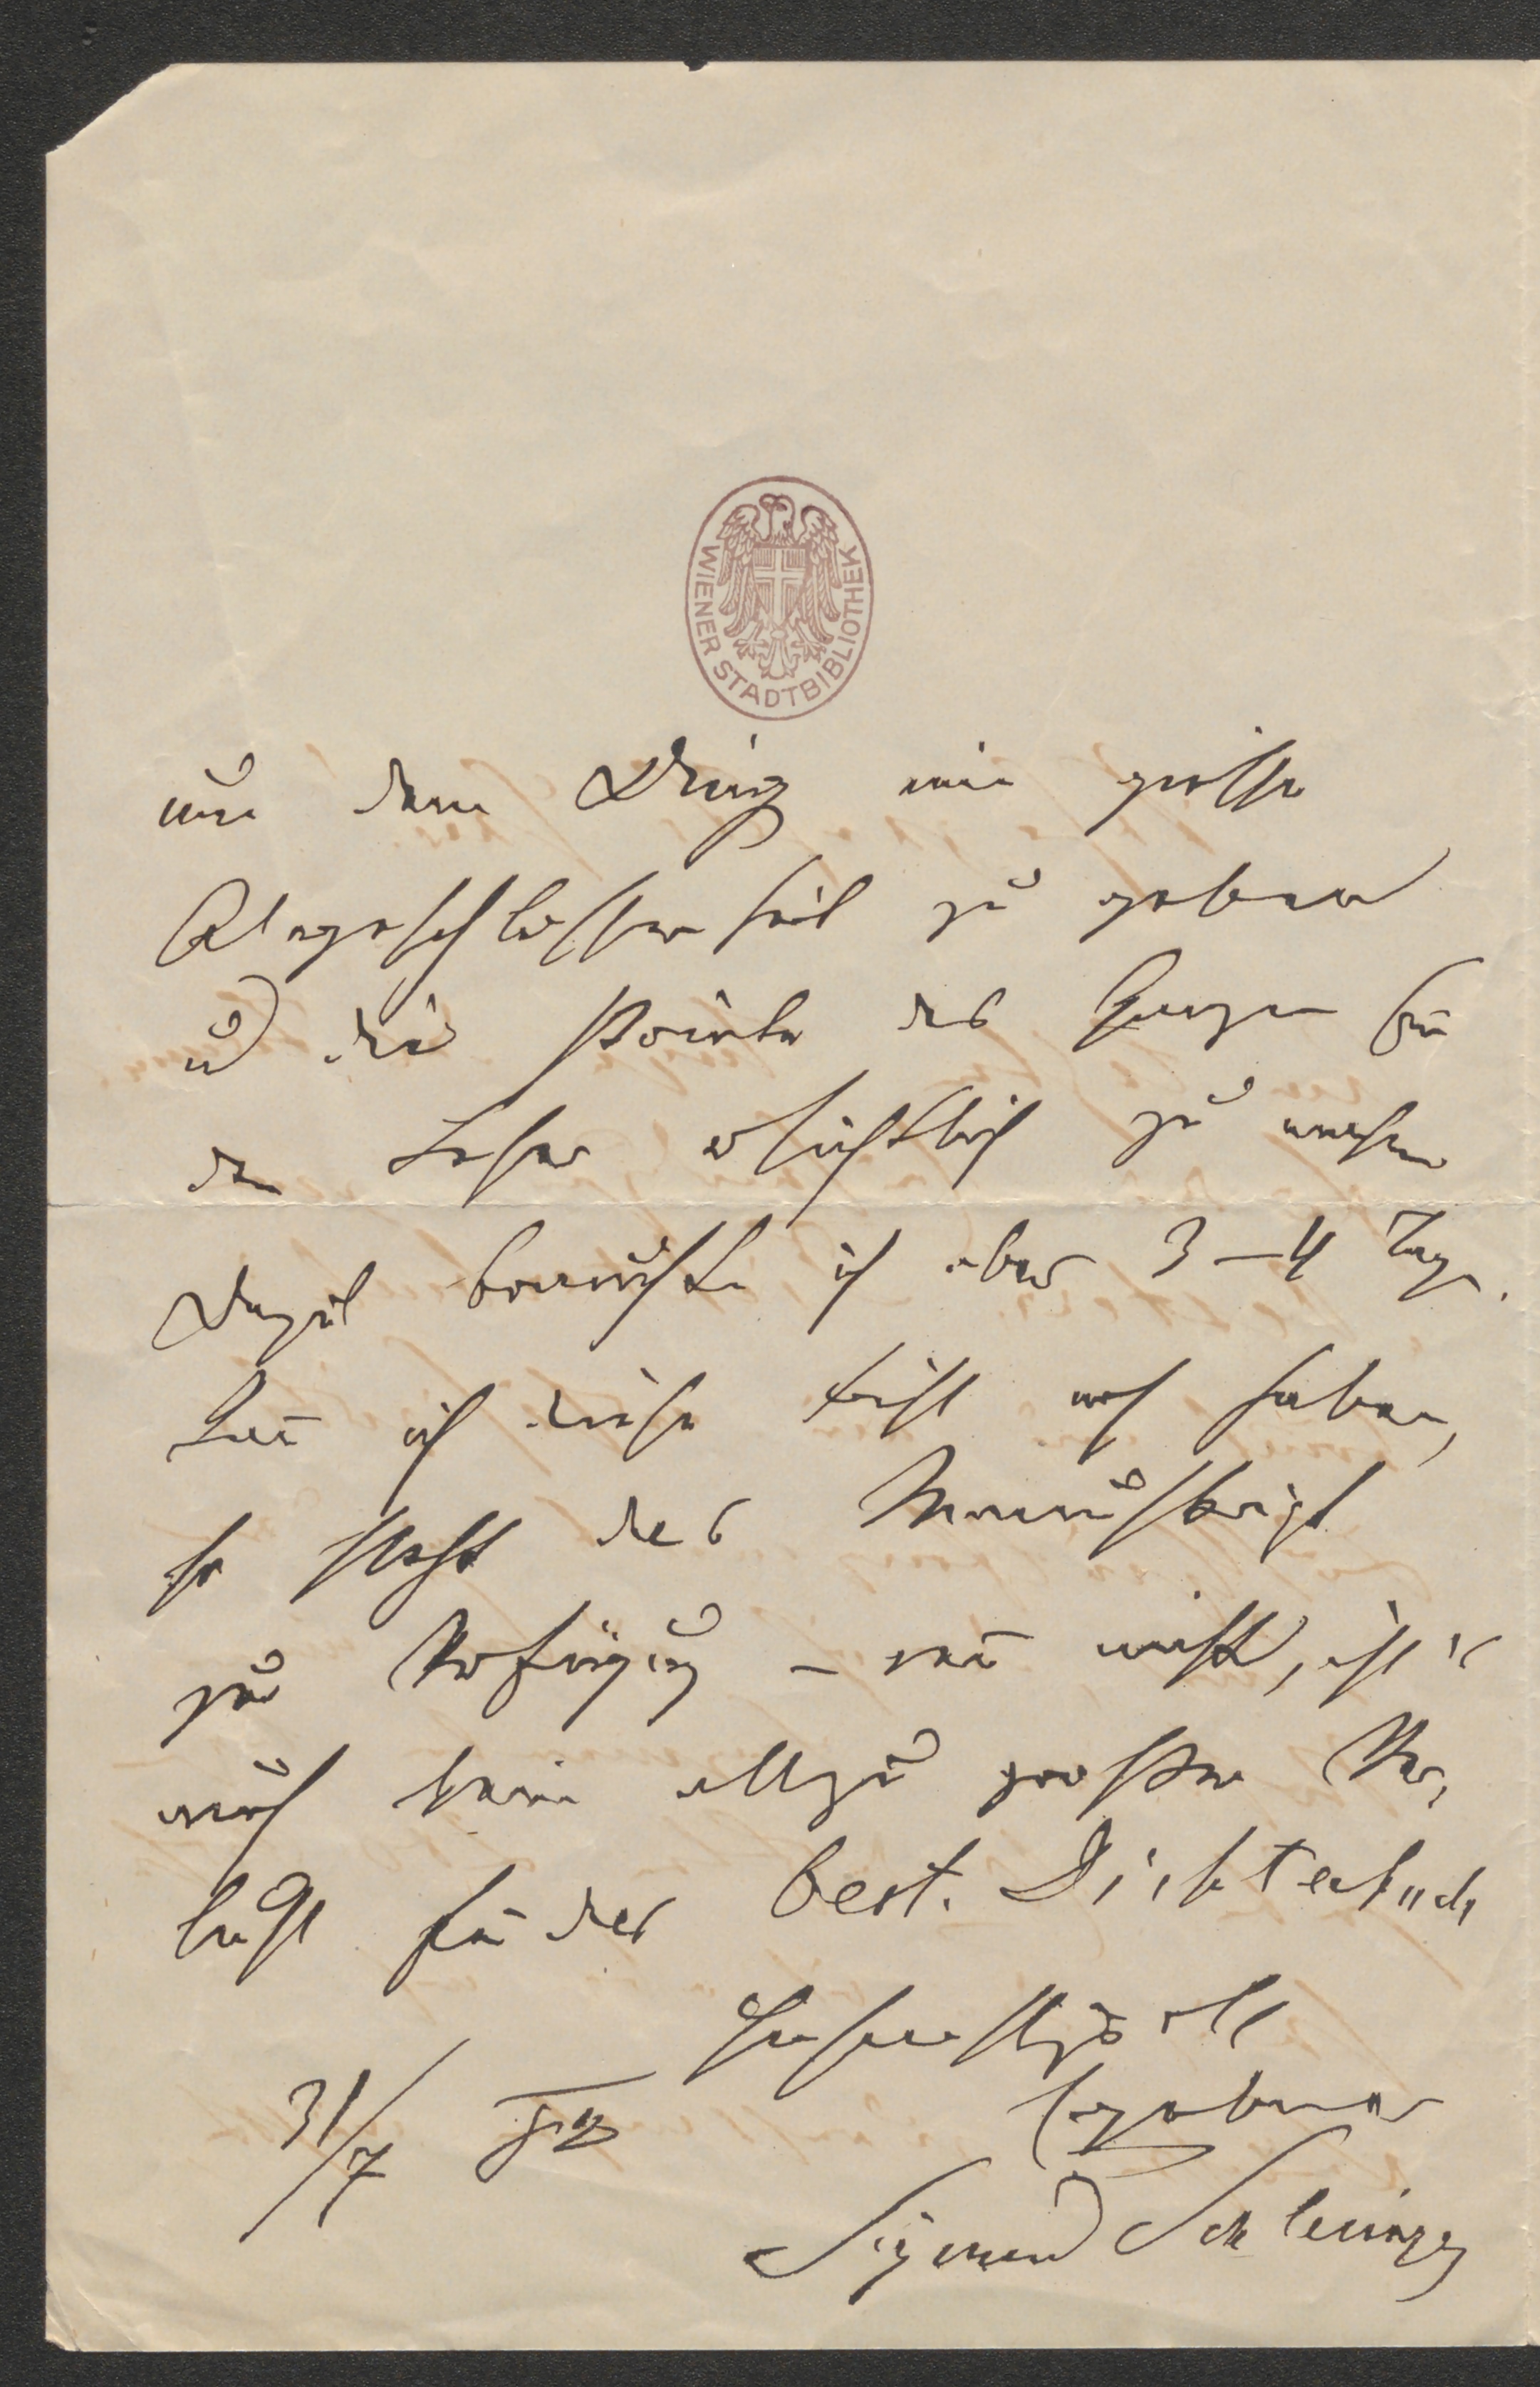 WIENER STADTBIBLIOTHEK
um dem Ding eine größere
Abgeschlossenheit zu geben
u die Pointe des Ganzen für
den Leser ersichtlich zu machen
Dazu brauchte ich aber 3–4 Tage.
Kann ich diese Frist noch haben,
so steht das Manuskript
zur Verfügung – wenn nicht, ist's
auch kein allzu großer Ver-
lust für das öest. Dichterbuch
Hochachtungsvoll
Ergebener
31/7 82
Sigmund Schlesinger